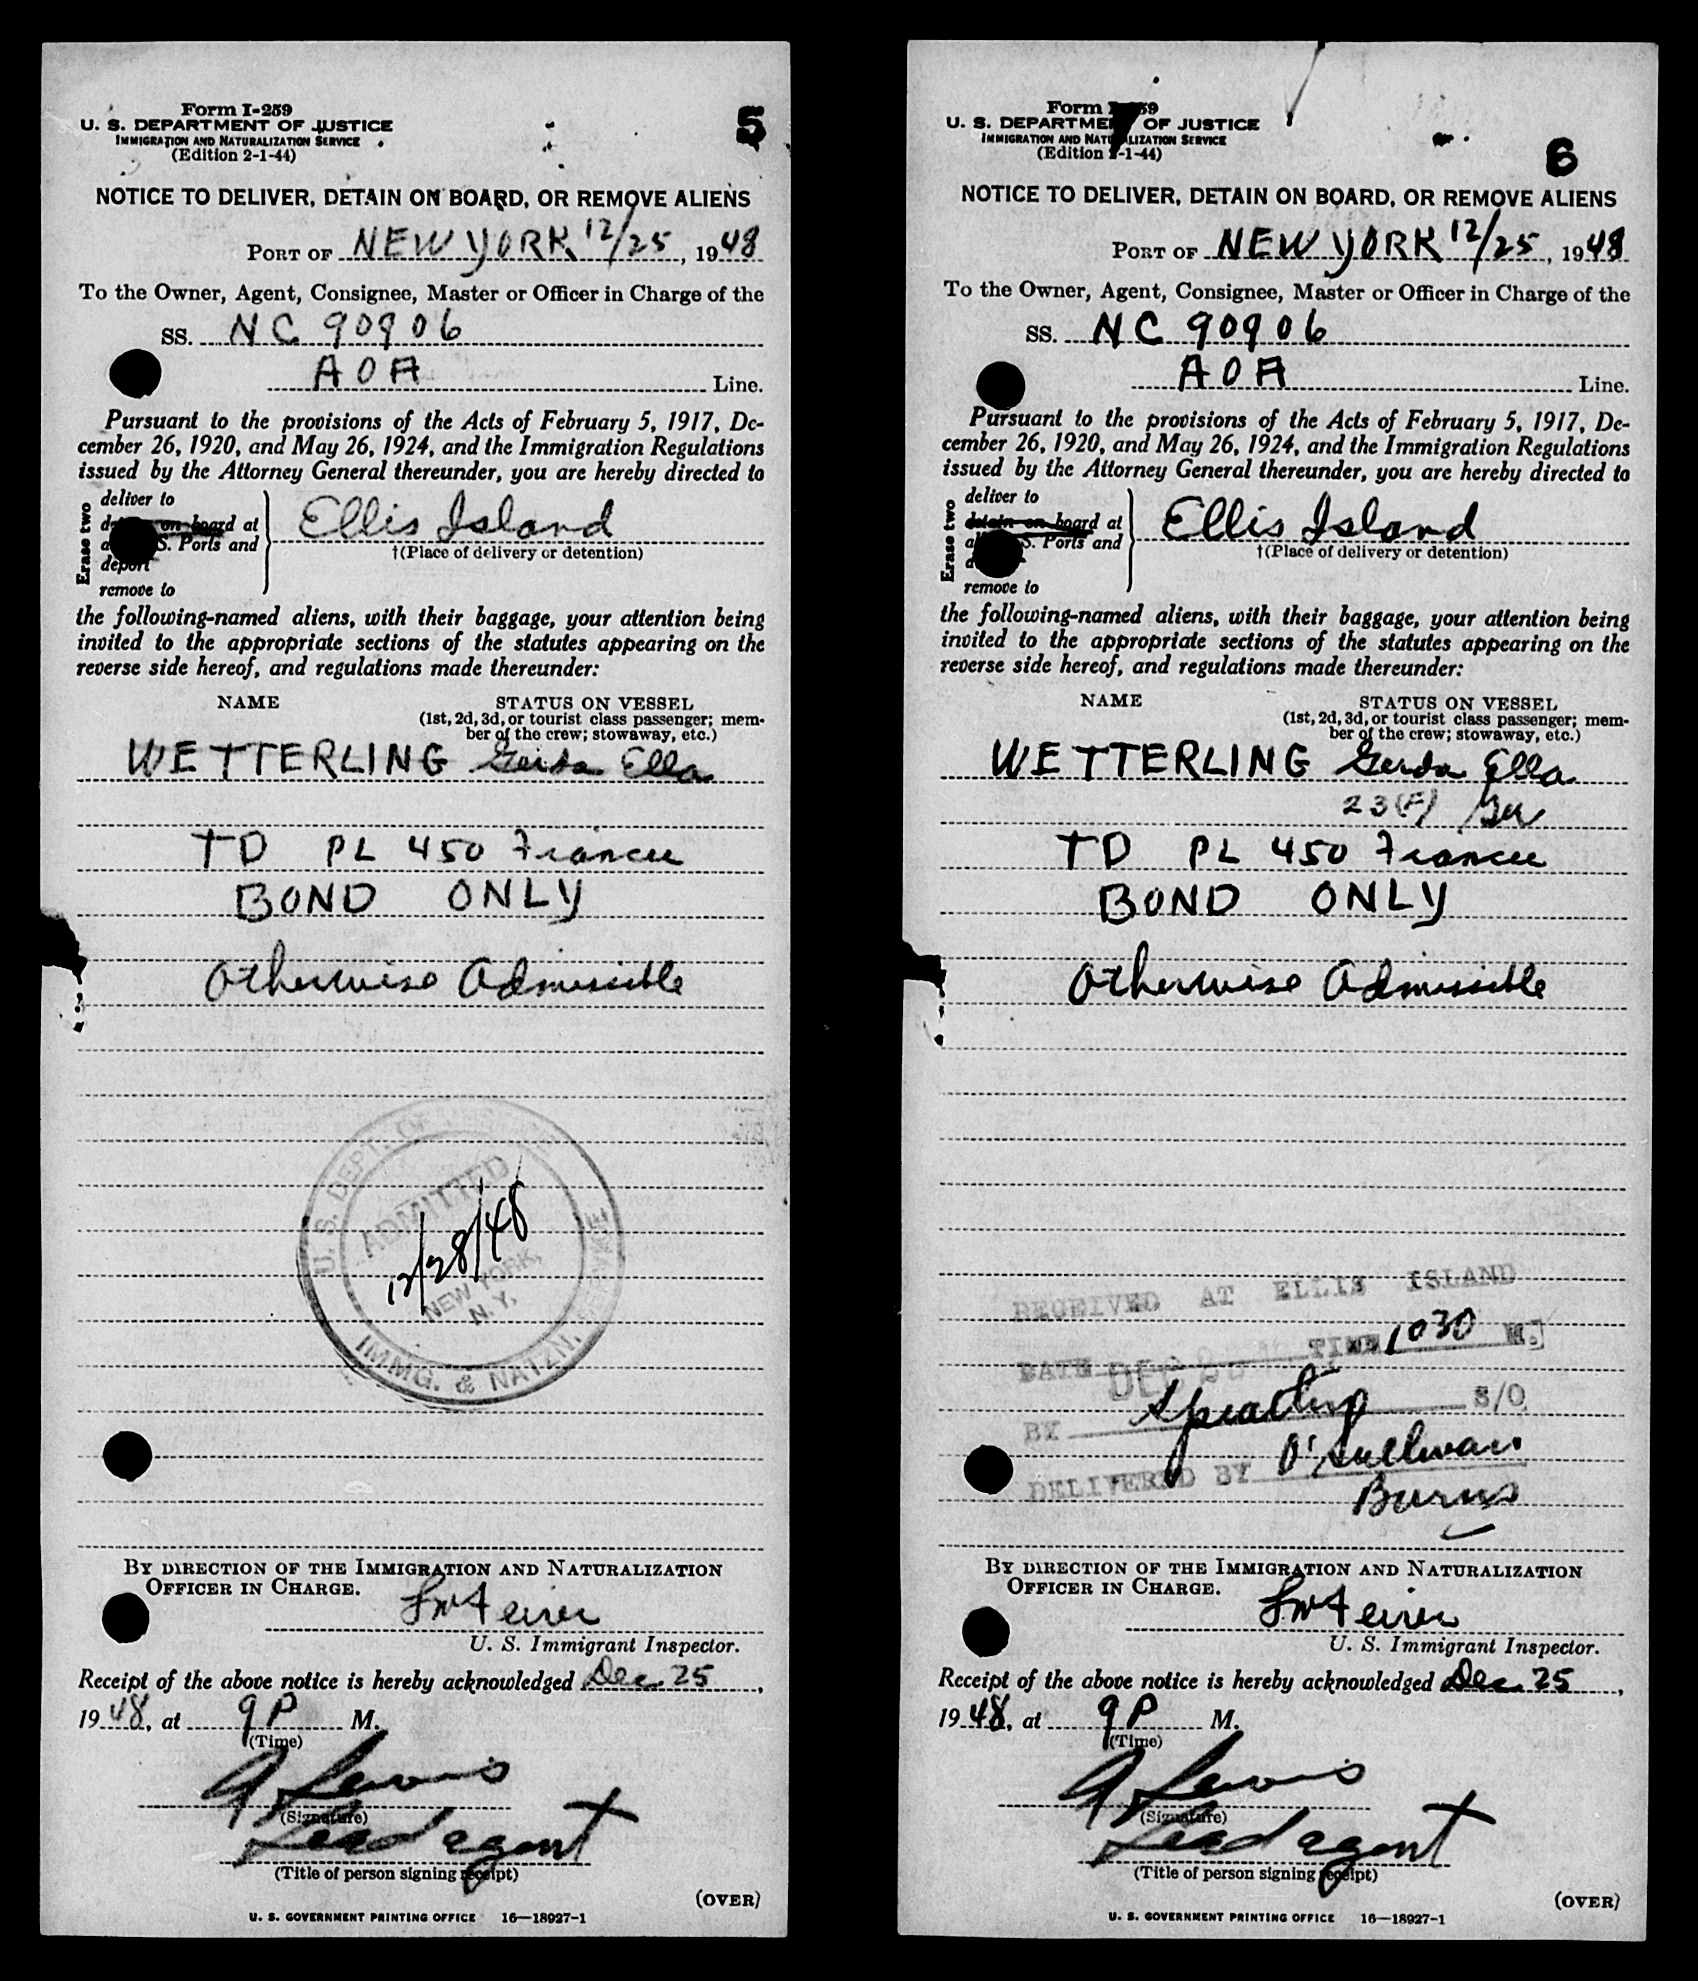 Form I-259
U. S. DEPARTMENT OF JUSTICE
IMMIGRATION AND NATURALIZATION SERVICE
(Edition 2-1-44)
5
NOTICE TO DELIVER, DETAIN ON BOARD, OR REMOVE ALIENS
PORT OF NEW YORK 12/25, 1948
To the Owner, Agent, Consignee, Master or Officer in Charge of the
SS. NC 90906
AOA Line.
Pursuant to the provisions of the Acts of February 5, 1917, De-
cember 26, 1920, and May 26, 1924, and the Immigration Regulations
issued by the Attorney General thereunder, you are hereby directed to
Erase two
deliver to
on board at
S. Ports and
deport
remove to
Ellis Island
†(Place of delivery or detention)
the following-named aliens, with their baggage, your attention being
invited to the appropriate sections of the statutes appearing on the
reverse side hereof, and regulations made thereunder:
NAME STATUS ON VESSEL
(1st, 2d, 3d, or tourist class passenger; mem-
ber of the crew; stowaway, etc.)
WETTERLING Gerda Ella
TD PL 450 Fiancee
BOND ONLY
Otherwise Admissible
U. S. DEPT. OF
ADMITTED
12/28/48
NEW YORK,
N. Y.
IMMG. & NATZN.
BY DIRECTION OF THE IMMIGRATION AND NATURALIZATION
OFFICER IN CHARGE.
U. S. Immigrant Inspector.
Receipt of the above notice is hereby acknowledged Dec. 25,
1948, at 9 P M.
(Time)
A Lewis
(Signature)
Lead agent
(Title of person signing receipt)
(OVER)
U. S. GOVERNMENT PRINTING OFFICE 16—18927-1
Form I-259
U. S. DEPARTMENT OF JUSTICE
IMMIGRATION AND NATURALIZATION SERVICE
(Edition 2-1-44)
6
NOTICE TO DELIVER, DETAIN ON BOARD, OR REMOVE ALIENS
PORT OF NEW YORK 12/25, 1948
To the Owner, Agent, Consignee, Master or Officer in Charge of the
SS. NC 90906
AOA Line.
Pursuant to the provisions of the Acts of February 5, 1917, De-
cember 26, 1920, and May 26, 1924, and the Immigration Regulations
issued by the Attorney General thereunder, you are hereby directed to
Erase two
deliver to
detain on board at
S. Ports and
remove to
Ellis Island
†(Place of delivery or detention)
the following-named aliens, with their baggage, your attention being
invited to the appropriate sections of the statutes appearing on the
reverse side hereof, and regulations made thereunder:
NAME STATUS ON VESSEL
(1st, 2d, 3d, or tourist class passenger; mem-
ber of the crew; stowaway, etc.)
WETTERLING Gerda Ella
23 (F) Ger
TD PL 450 Fiancee
BOND ONLY
Otherwise Admissible
RECEIVED AT ELLIS ISLAND
DATE DEC TIME 1030 M.
BY S/O
DELIVERED BY O'Sullivan
Burns
BY DIRECTION OF THE IMMIGRATION AND NATURALIZATION
OFFICER IN CHARGE.
U. S. Immigrant Inspector.
Receipt of the above notice is hereby acknowledged Dec. 25,
1948, at 9 P M.
(Time)
A Lewis
(Signature)
Lead agent
(Title of person signing receipt)
(OVER)
U. S. GOVERNMENT PRINTING OFFICE 16—18927-1